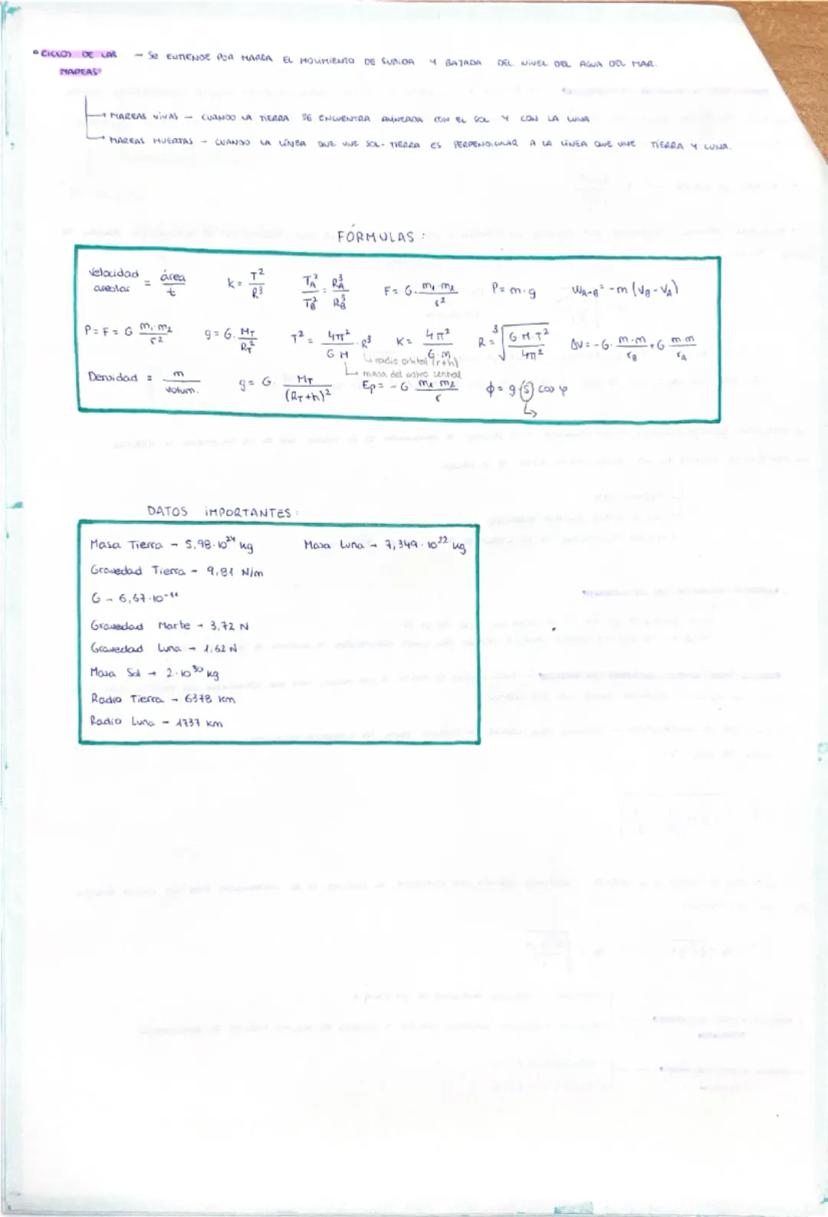 • CICLOS DE LAS MAREAS - SE ENTIENDE POR MAREA EL MOVIMIENTO DE SUBIDA Y BAJADA DEL NIVEL DEL AGUA DEL MAR.
→ MAREAS VIVAS - CUANDO LA TIERRA SE ENCUENTRA ALINEADA CON EL SOL Y CON LA LUNA
→ MAREAS MUERTAS - CUANDO LA LÍNEA QUE UNE SOL-TIERRA ES PERPENDICULAR A LA LÍNEA QUE UNE TIERRA Y LUNA.
FÓRMULAS:
Velocidad areolar = área / t   K = T² / R³   T_A² / T_B² = R_A³ / R_B³   F = G · m₁·m₂ / r²   P = m·g   W_A→B = -m (V_B - V_A)
P = F = G m₁·m₂ / r²   g = G · M_T / R_T²   T² = 4π² / G M · R³   K = 4π² / G·m   R = ³√(G·M·T² / 4π²)   ΔV = -G · m·m / r_B + G m·m / r_A
↳ radio orbital (r+h)
↳ masa del astro central
Densidad = m / volum.   g = G · M_T / (R_T + h)²   Ep = -G m₁·m₂ / r   ϕ = g·(S) cos φ
DATOS IMPORTANTES:
Masa Tierra - 5,98·10²⁴ kg   Masa Luna → 7,349·10²² kg
Gravedad Tierra - 9,81 N/m
G - 6,67·10⁻¹¹
Gravedad Marte → 3,72 N
Gravedad Luna → 1,62 N
Masa Sol → 2·10³⁰ kg
Radio Tierra → 6378 Km
Radio Luna - 1737 Km